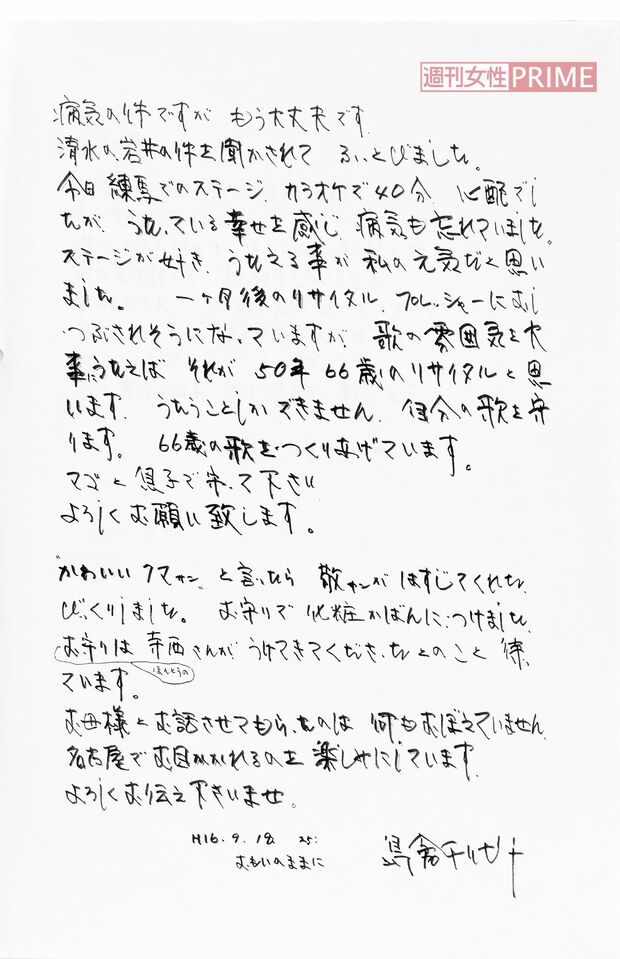 週刊女性PRIME
病気の件ですが もう大丈夫です
清水の岩井の件を聞かされて ふっとびました。
今日 練馬でのステージ、カラオケで40分、心配でし
たが、うたっている幸せを感じ 病気も忘れていました。
ステージが好き、うたえる事が 私の元気だと思い
ました。 一ヶ月後のリサイタル、プレッシャーにおし
つぶされそうになっていますが 歌の雰囲気を大
事にうたえば それが 50年 66歳のリサイタルと思
います うたうことしかできません、自分の歌を守
ります。 66歳の歌を つくりあげています。
マゴと息子で守って下さい
よろしくお願い致します。
"かわいいクマサン" と言ったら 敬ちゃんが はずしてくれた
びっくりしました。 お守りで 化粧かばんに つけました
お守りは 寺西さんが うけてきてくださったとのこと 待っ
ほんとうの
ています。
お母様とお話させてもらったのは 何もおぼえていません
名古屋でお目にかかれるのを 楽しみにしています
よろしくお伝え下さいませ。
H16.9.18
おもいのままに
島倉千代子